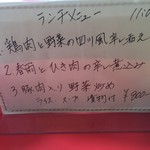 ランチメニュー 11:0
1. 鶏肉と野菜の四川風辛し煮え
2 春雨とひき肉の辛し煮込み
3 豚肉入り野菜炒め
ライス スープ 漬物付 ¥800